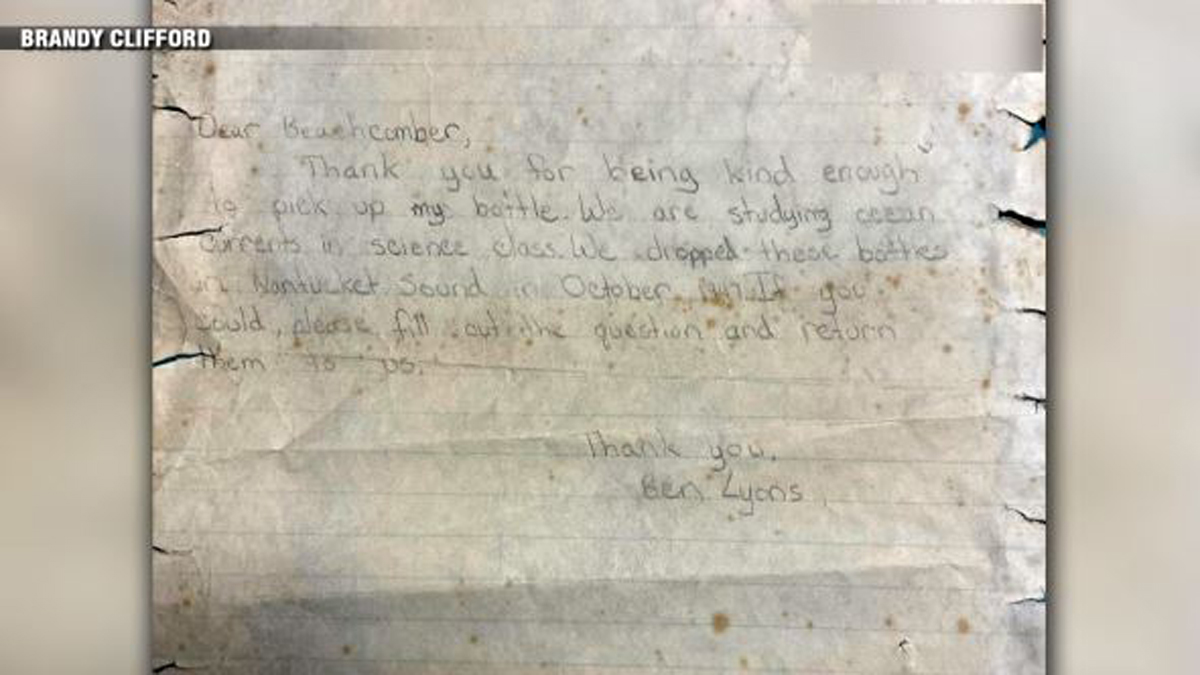 BRANDY CLIFFORD
Dear Beachcomber,
Thank you for being kind enough
to pick up my bottle. We are studying ocean
currents in science class. We dropped these bottles
in Nantucket Sound in October If you
could, please fill out the question and return
them to us.
Thank you,
Ben Lyons